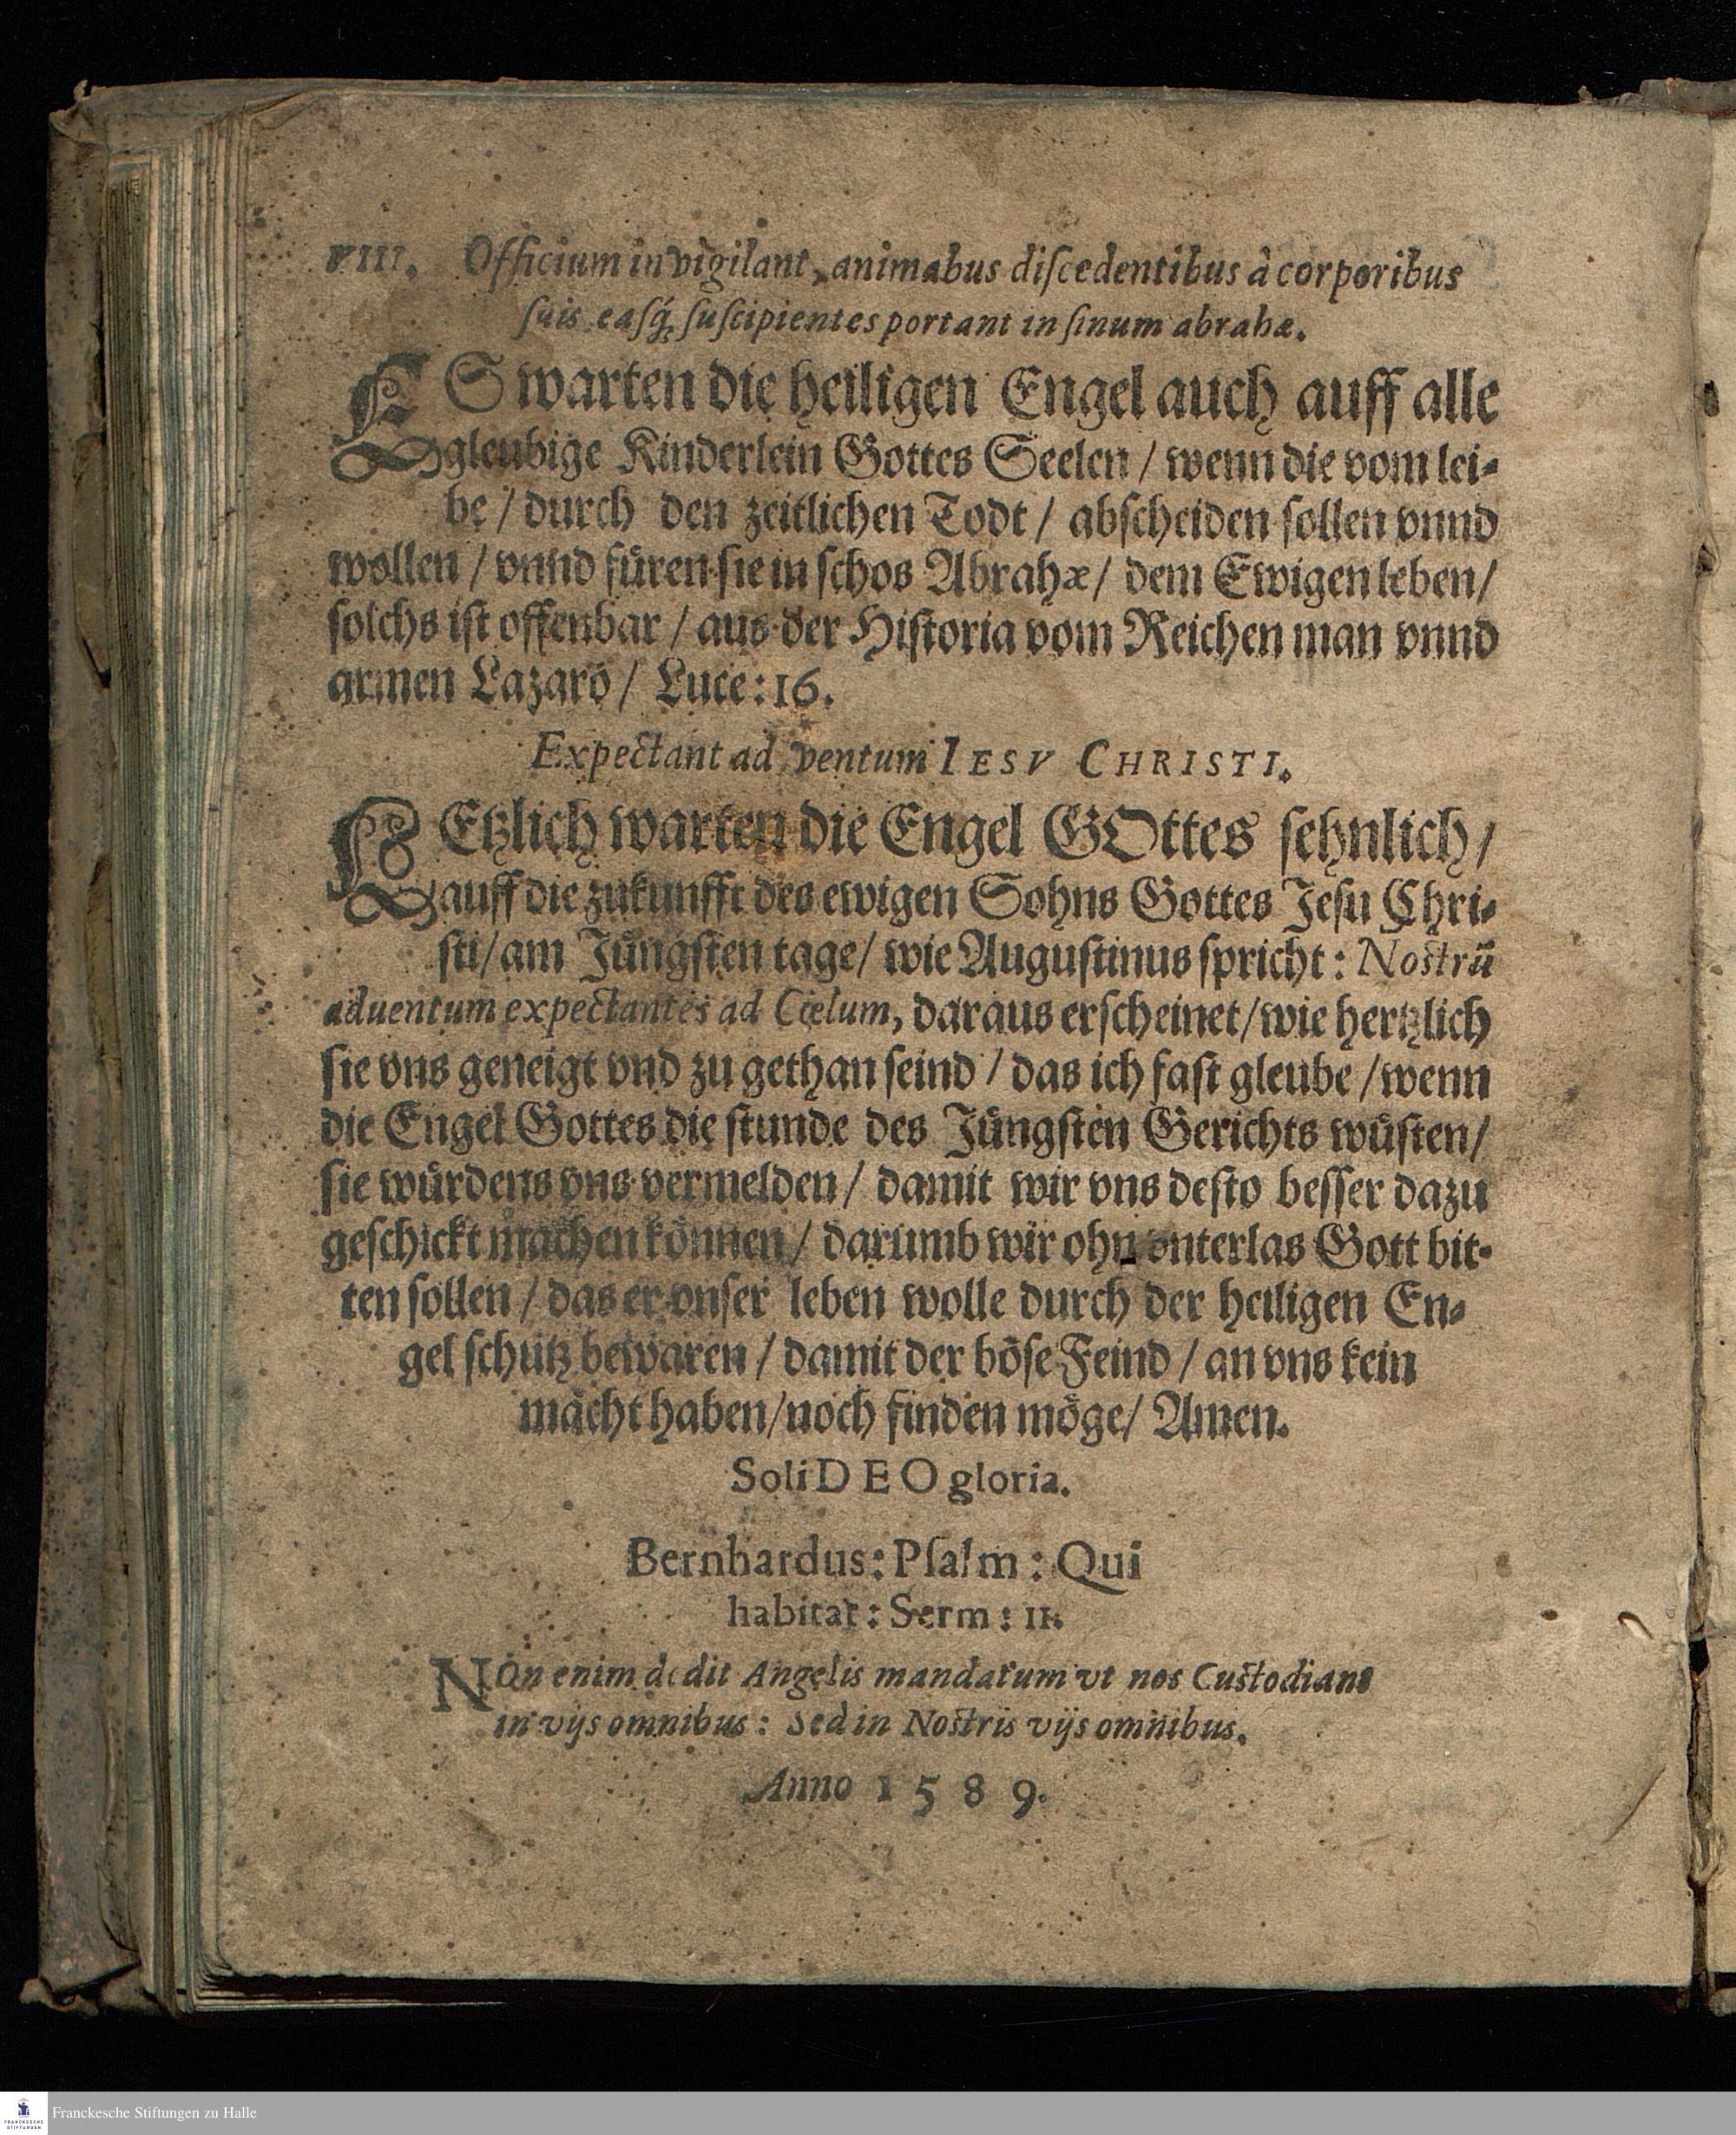 VIII. Officium invigilant, animabus diſcedentibus à corporibus
ſuis eaſq́; ſuſcipientes portant in ſinum abrahæ.
ES warten die heiligen Engel auch auff alle
gleubige Kinderlein Gottes Seelen / wenn die vom lei-
be / durch den zeitlichen Todt / abſcheiden ſollen vnnd
wollen / vnnd fuͤren ſie in ſchos Abrahæ / dem Ewigen leben /
ſolchs iſt offenbar / aus der Hiſtoria vom Reichen man vnnd
armen Lazaro / Luce: 16.
Expectant ad ventum IESV CHRISTI.
LEtzlich warten die Engel GOttes ſehnlich /
auff die zukunfft des ewigen Sohns Gottes Jeſu Chri-
ſti / am Juͤngſten tage / wie Auguſtinus ſpricht: Noſtrū
aduentum expectantes ad Cœlum, daraus erſcheinet / wie hertzlich
ſie vns geneigt vnd zu gethan ſeind / das ich faſt gleube / wenn
die Engel Gottes die ſtunde des Juͤngſten Gerichts wuͤſten /
ſie wuͤrdens vns vermelden / damit wir vns deſto beſſer dazu
geſchickt machen koͤnnen / darumb wir ohn vnterlas Gott bit-
ten ſollen / das er vnſer leben wolle durch der heiligen En-
gel ſchutz bewaren / damit der boͤſe Feind / an vns kein
macht haben / noch finden moͤge / Amen.
Soli DEO gloria.
Bernhardus: Pſalm: Qui
habitat: Serm: II.
NOn enim dedit Angelis mandatum vt nos Cuſtodiant
in vijs omnibus: Sed in Noſtris vijs omnibus.
Anno 1589.
Franckesche Stiftungen zu Halle
FRANCKESCHE
STIFTUNGEN